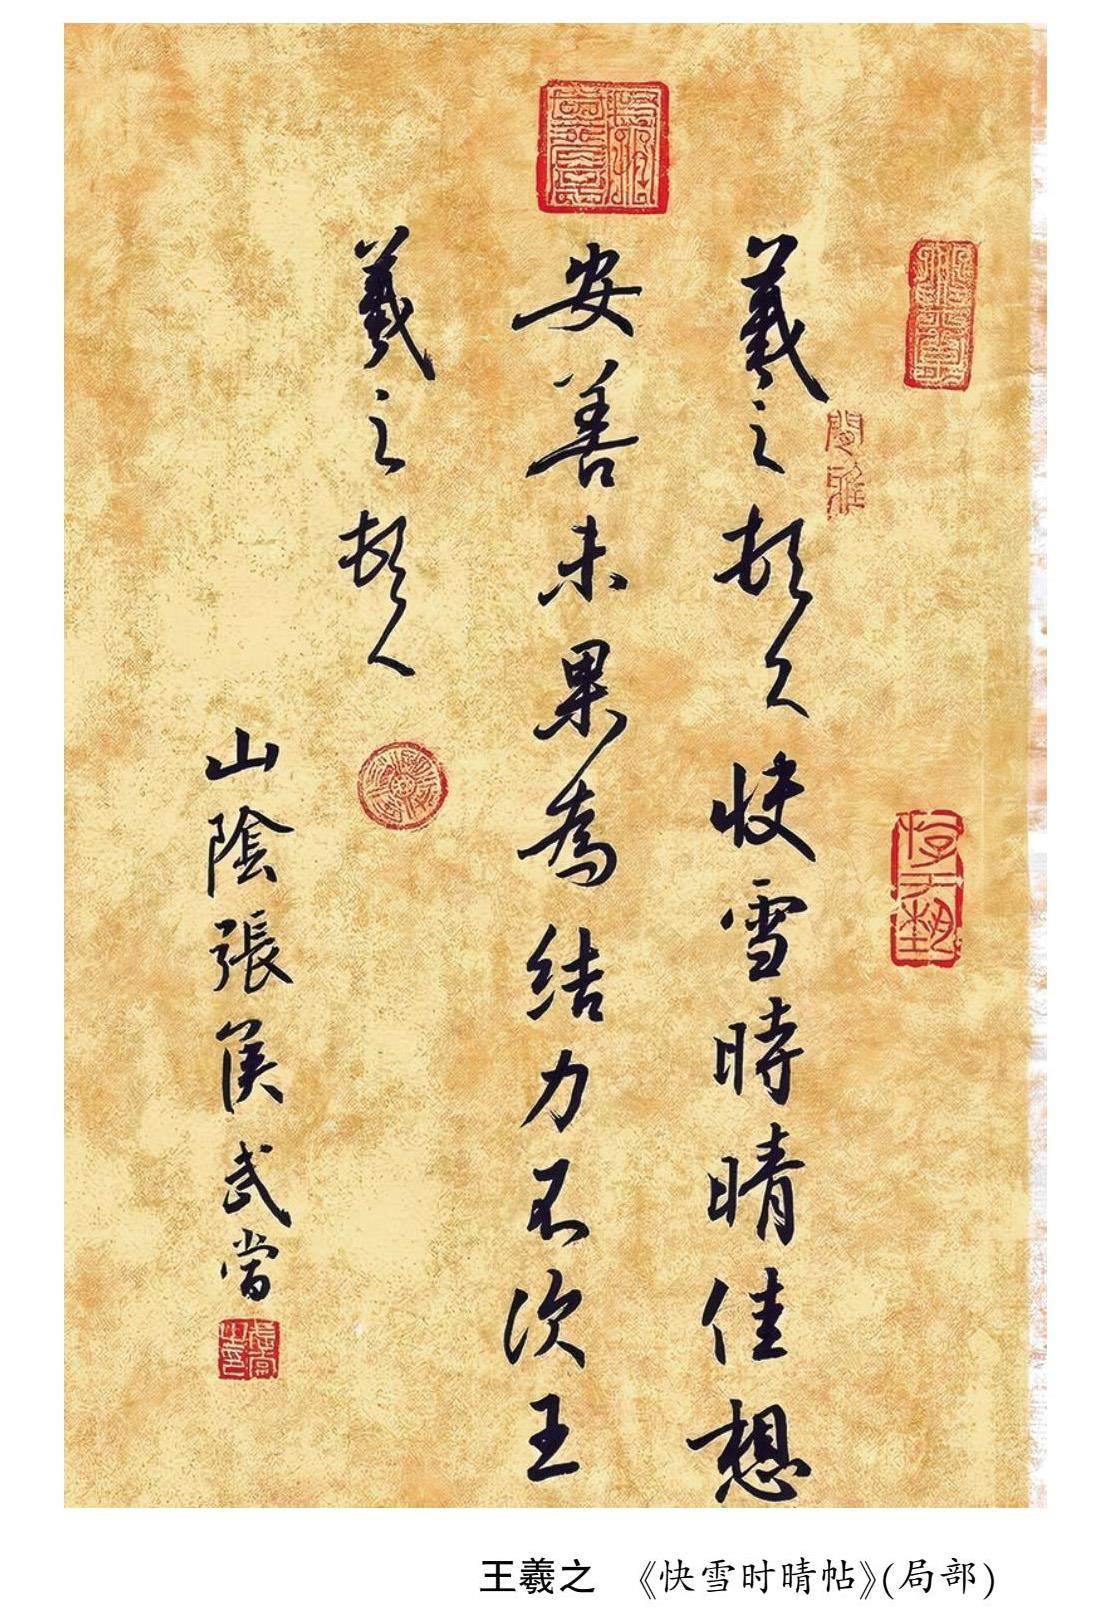 羲之頓首快雪時晴佳想
安善未果為結力不次王
羲之頓首
山陰張侯 武當
閒雅
王羲之 《快雪时晴帖》(局部)